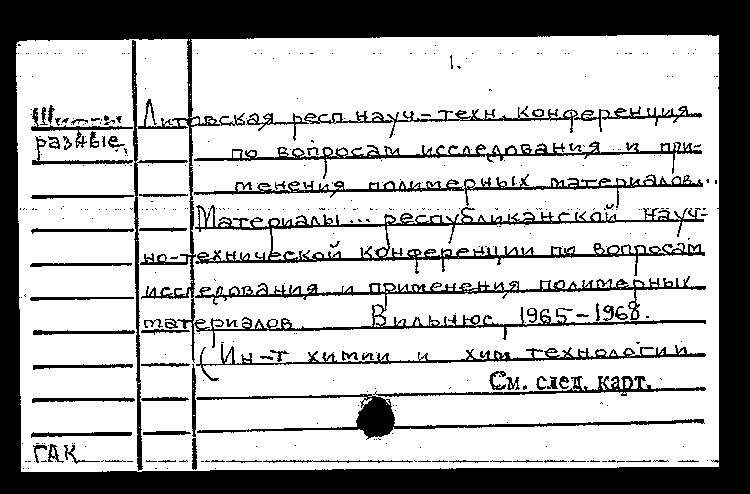 1.
Шифры Литовская респ науч-техн. конференция
разные. по вопросам исследования и при-
менения полимерных материалов...
Материалы... республиканской науч-
но-технической конференции по вопросам
исследования и применения полимерных
материалов. Вильнюс, 1965-1968.
(Ин-т химии и хим. технологии
См. след. карт.
ГАК